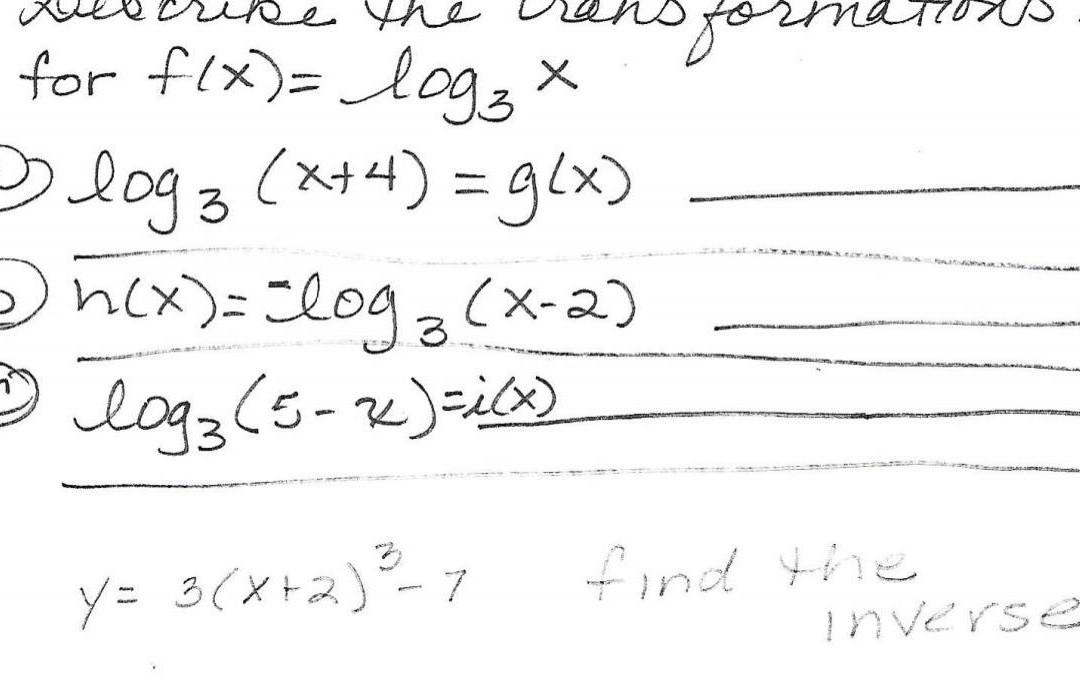 Describe the transformations
for f(x)= log₃ x
log₃ (x+4) = g(x)
h(x)= -log₃ (x-2)
log₃(5-x)=i(x)
y= 3(x+2)³-7 find the
inverse